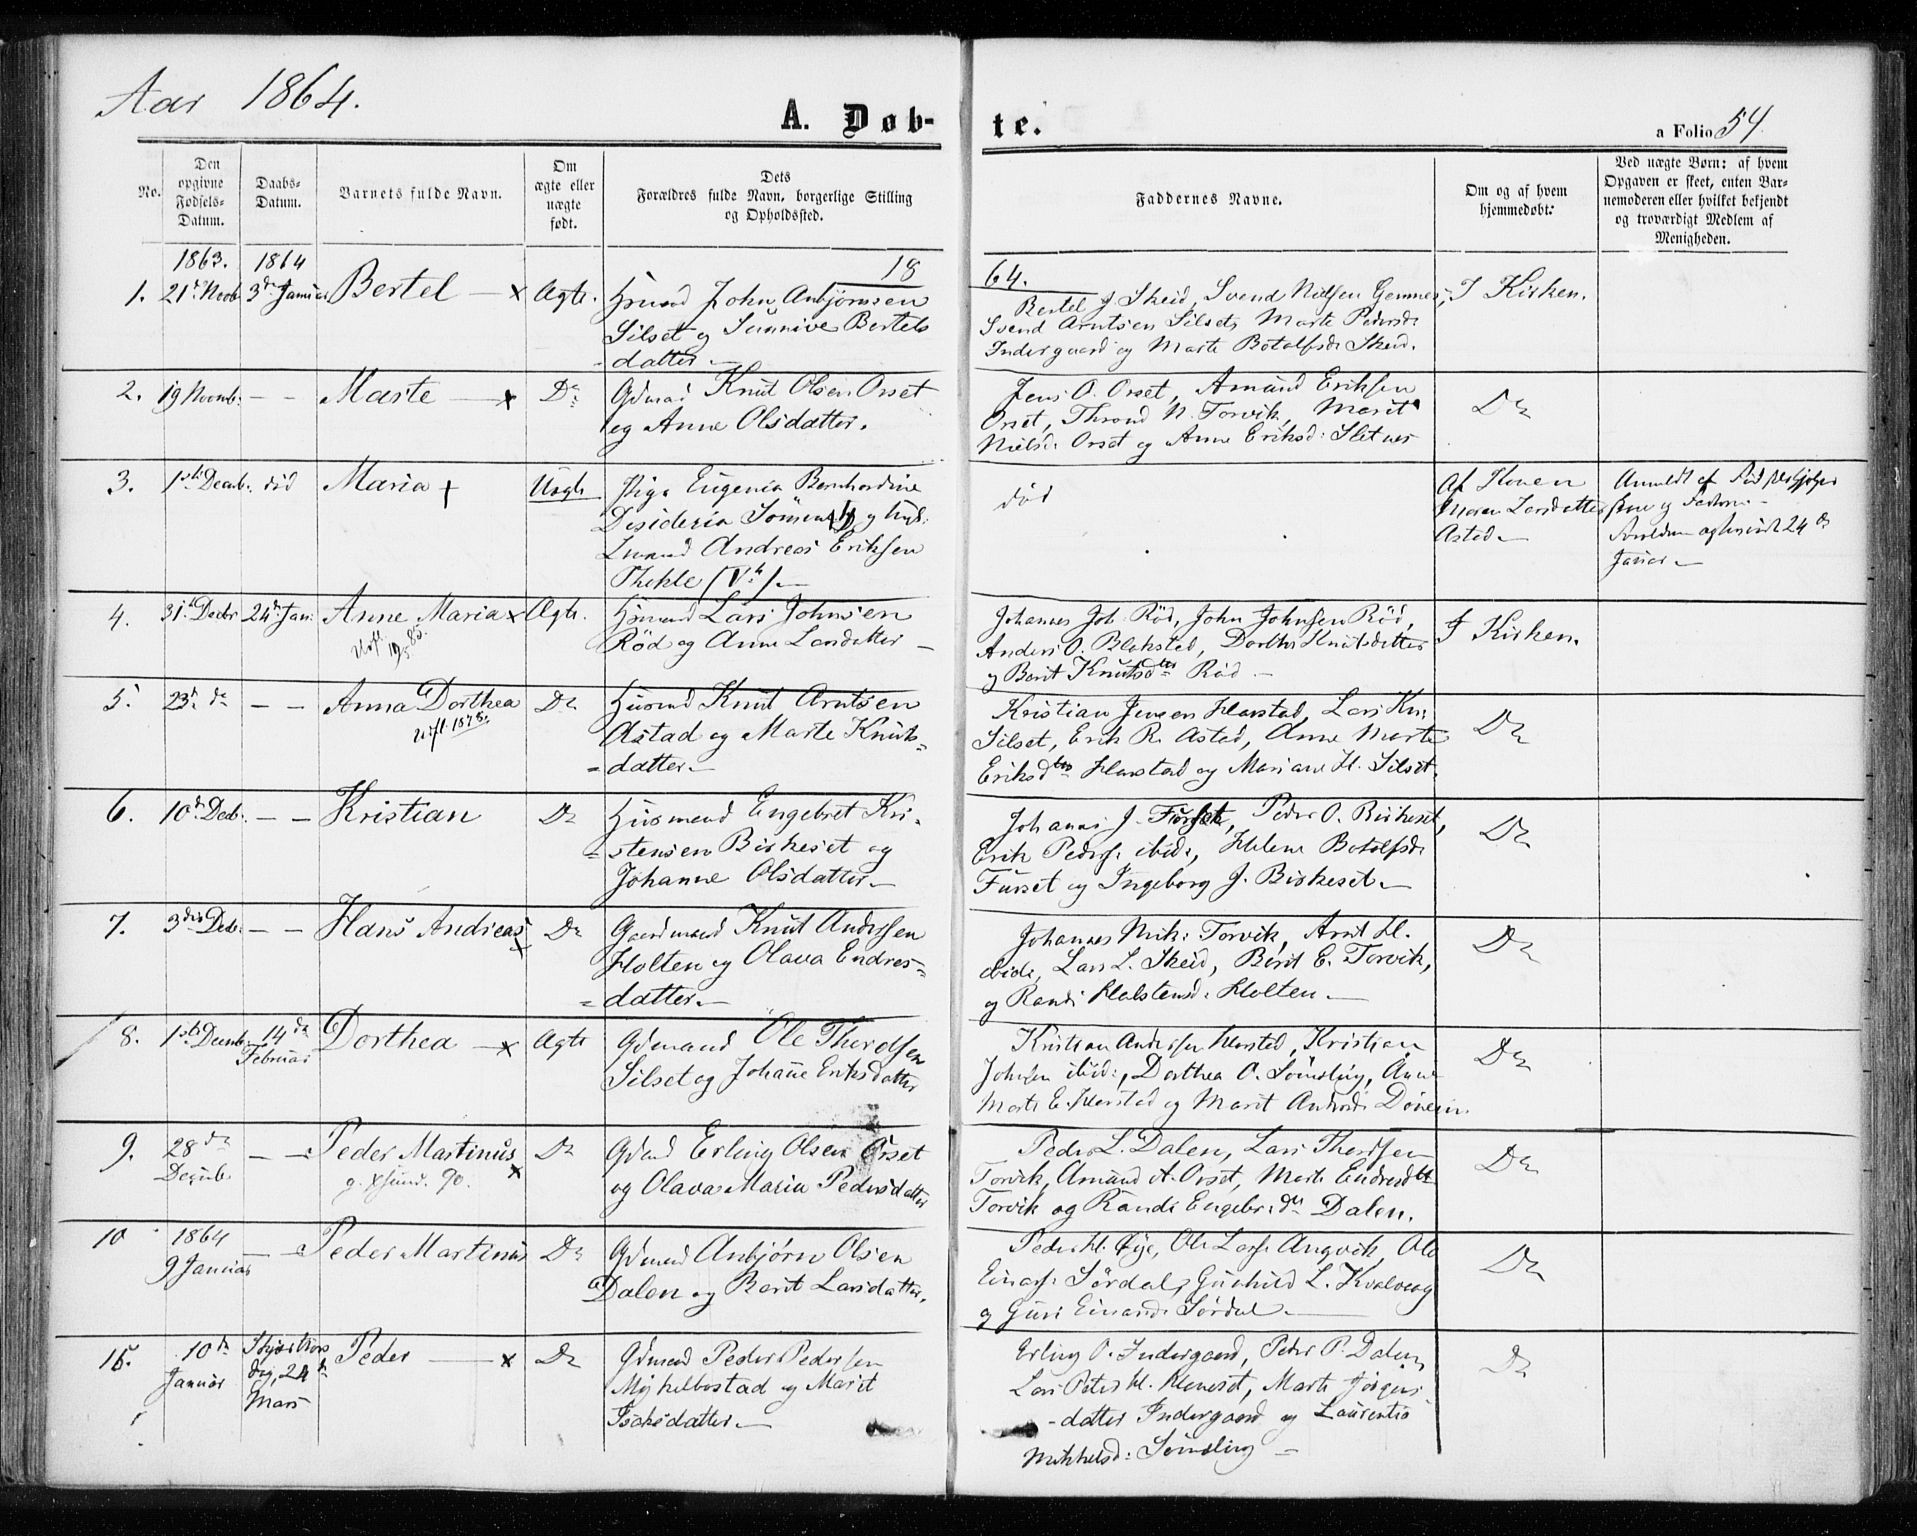 Aar 1864.
A. Døb-
te.
a Folio 54
No.
Den
opgivne
Fødsels-
Datum.
Daabs-
Datum.
Barnets fulde Navn.
Om
ægte eller
uægte
født.
Dets
Forældres fulde Navn, borgerlige Stilling
og Opholdssted.
Faddernes Navne.
Om og af hvem
hjemmedøbt:
Ved uægte Børn: af hvem
Opgaven er skeet, enten Bar-
nemoderen eller hvilket bekjendt
og troværdigt Medlem af
Menigheden.
1863.
1864
18
64.
1.
21de Novb
3de Januar
Bertel
Ægte.
John Anbjørnsen
Silset og Sunnive Bertels
datter
Bertel J Skeid, Svend Nielsen Gemnes,
Svend Arntsen Silset, Marte Pedersd:
Indergaard og Marte Botolfsd: Skeid.
I Kirken.
2.
19 Novmb:
Marte
Do
Gdmad Knut Olsen Orset
og Anne Olsdatter.
Jens O. Orset, Amund Eriksen
Orset, Thrond N. Torvik, Marit
Nielsd: Orset og Anne Eriksd: Sletnes
Do
3.
1ste Decemb.
død
Maria
Uægte
Pige Eugenia Bernhardine
Desideria
Andreas Eriksen
død
Af Konen
Maren Larsdatter
Astad
Anmeldt af
og Faderen
24de
Januar
4.
31te Decbr
24de Jan:
Anne Maria
Udfl. 1985.
Ægte.
Husmand Lars Johnsen
Rød og Anne Larsdatter
Johannes Joh. Rød, John Johnsen Rød,
Anders O. Blakstad, Dorthe Knutsdatter
og Berit Knutsdter Rød
I Kirken.
5.
23de do
Anna Dorthea
udfl. 1878.
Do
Husmd Knut Arntsen
Astad og Marte Knuts-
datter
Kristian Jensen Harstad, Lars Kn:
Silset, Erik R. Astad, Anne Marte
Eriksdter Harstad og Mariane H. Silset.
Do
6.
10de Decb.
Kristian
Do
Husmand Engebret Kri-
stensen Birkeset og
Johanne Olsdatter
Johannes J. Furset, Peder O. Birkeset,
Erik Peders: ibid:, Helene Botolfsd:
Furset og Ingeborg J. Birkeset
Do
7.
3die Decb:
Hans Andreas
Do
Gaardmand Knut Andersen
Holten og Olava Endres-
datter
Johannes Mik: Torvik, Arnt H.
ibid:, Lars L. Skeid, Berit E. Torvik,
og Randi Halstensd: Holten
Do
8.
1ste Decemb.
14de
Februar
Dorthea
Ægte
Gdmand Ole Therolsen
Silset og Johanne Eriksdatter
Kristian Andersen Harstad, Kristian
Johnsen ibid:, Dorthea O. Sønsling, Anne
Marte E. Harstad og Marit Andersd:
Do
9.
28de
Decemb.
Peder Martinus
Do
Gdmd Erling Olsen Orset
og Olava Maria Pedersdatter
Peder L. Dalen, Lars Therolsen
Torvik, Amund A. Orset, Marte Endresdtr
Torvik og Randi Engebr:dtr Dalen.
Do
10
1864
9 Januar
Peder Martinus
Do
Gdmand Anbjørn Olsen
Dalen og Berit Larsdatter.
Peder H. Øye, Ole Lars: Angvik, Ole
Einars: Sørdal, Gunhild L. Kvalvaag
og Guri Einarsd: Sørdal
Do
15.
10de
Januar
Skjærtors
dag, 24de
Mars
Peder
Do
Gdmand Peder Pedersen
Myhlebostad og Marit
Isaksdatter
Erling O. Indergaard, Peder P. Dalen,
Lars Peter H. Heneset, Marte Jørgens
datter Indergaard og Laurentia
Mikkelsd: Sønsling
Do